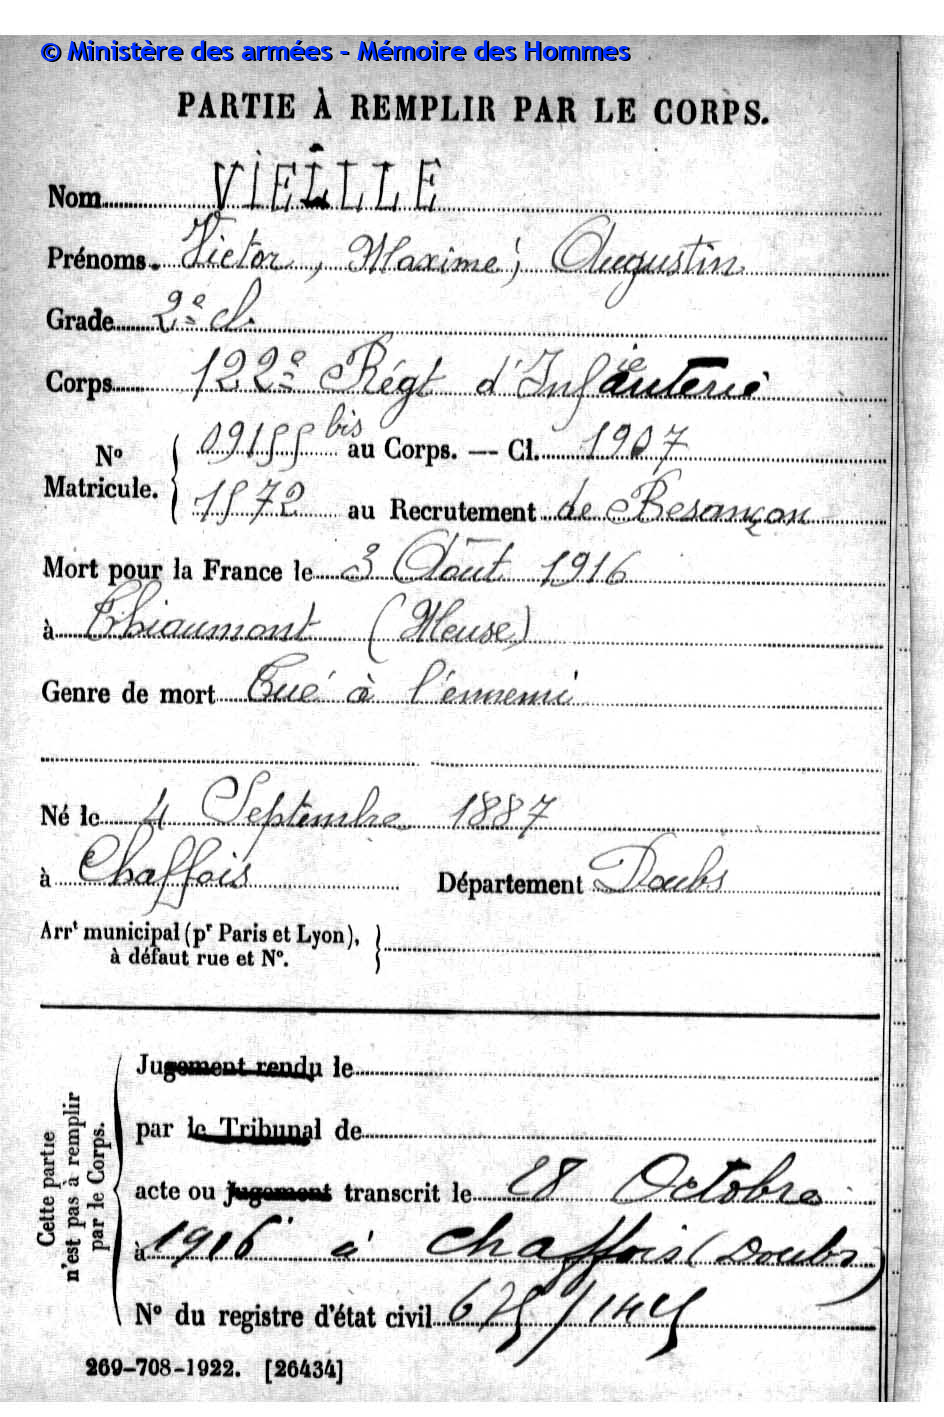 © Ministère des armées - Mémoire des Hommes
PARTIE À REMPLIR PAR LE CORPS.
Nom VIEILLE
Prénoms Victor, Maxime, Augustin
Grade 2e cl.
Corps 122e Régt d'Infanterie
No Matricule. 09155 bis au Corps. — Cl. 1907
1572 au Recrutement de Besançon
Mort pour la France le 3 Août 1916
à Thiaumont (Meuse)
Genre de mort Tué à l'ennemi
Né le 4 Septembre 1887
à Chaffois Département Doubs
Arrt municipal (pr Paris et Lyon),
à défaut rue et No.
Cette partie
n'est pas à remplir
par le Corps.
Jugement rendu le
par le Tribunal de
acte ou jugement transcrit le 28 Octobre
à 1916 à Chaffois (Doubs)
No du registre d'état civil 675/145
269-708-1922. [26434]